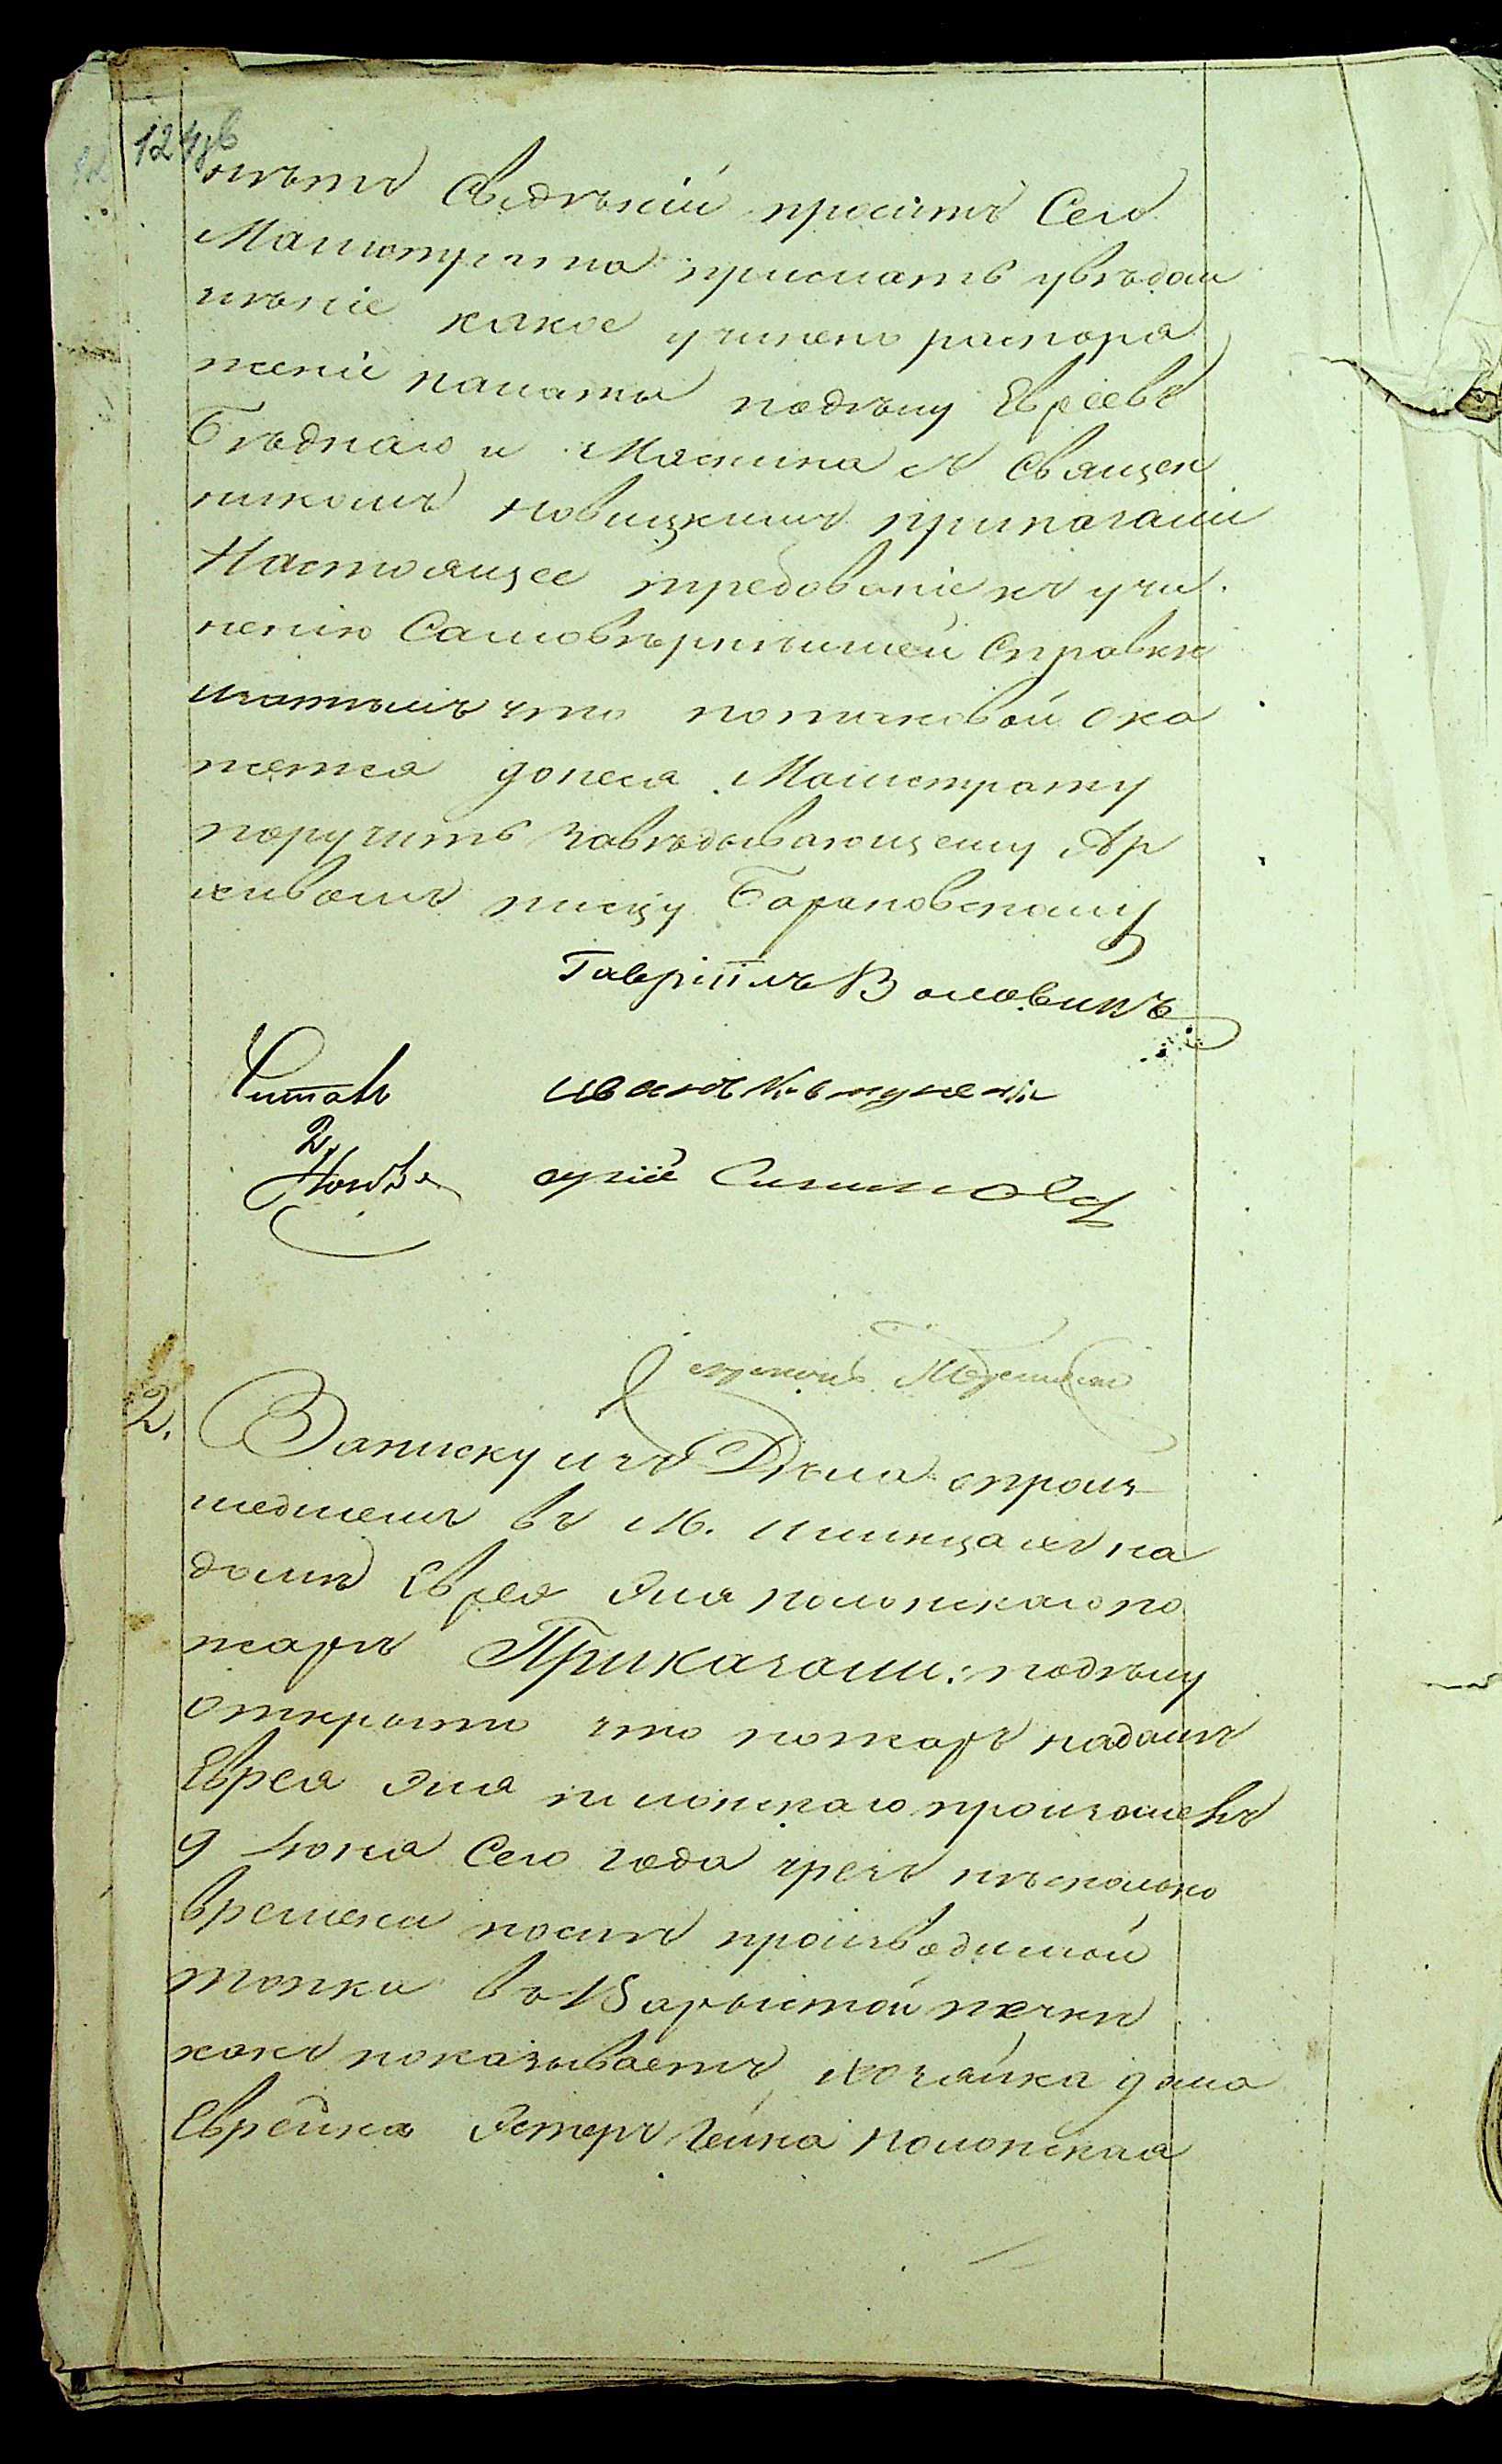 124об
нѣтъ Свѣдѣнiй проситъ Сего
Магистрата прислать увѣдом
лѣнiе какое учинено распоря
женiе палаты подѣлу Евреевъ
Бѣднаго и Маскина съ Священ
никомъ Новицкимъ приказали
Настоящее требованiе къ учи
ненiю Самовѣрнѣйшей Справки
что потаковой ока
жется донеся Магистрату
поручить Завѣдывающему Ар
хивомъ писцу Барановскому
Гаврiилъ
Читалъ иванъ
2, Iюня
2.
Записку изъ Дѣла опроиз
шедшемъ въ М. на
домѣ Еврея Эля полонскаго по
жарѣ Приказали: подѣлу
открыто что пожаръ надомѣ
Еврея Эля полонскаго произошелъ
9 Iюня Сего года чрезъ нѣсколько
времени послѣ производимой
топки въ Варыстой печки
какъ показываетъ хозяйка дома
Еврейка Эстеръ Гейна полонская